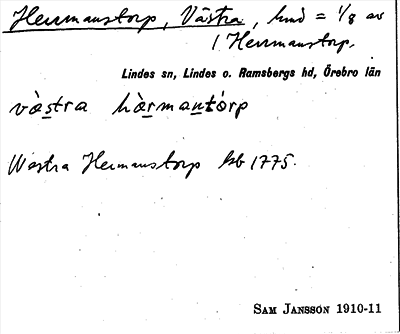 Herrmanstorp, Västra, hmd = 1/8 av
1 Herrmanstorp.
Lindes sn, Lindes o. Ramsbergs hd, Örebro län
vàstra hàrmantórp
Wästra Hermanstorp kb 1775.
SAM JANSSON 1910-11